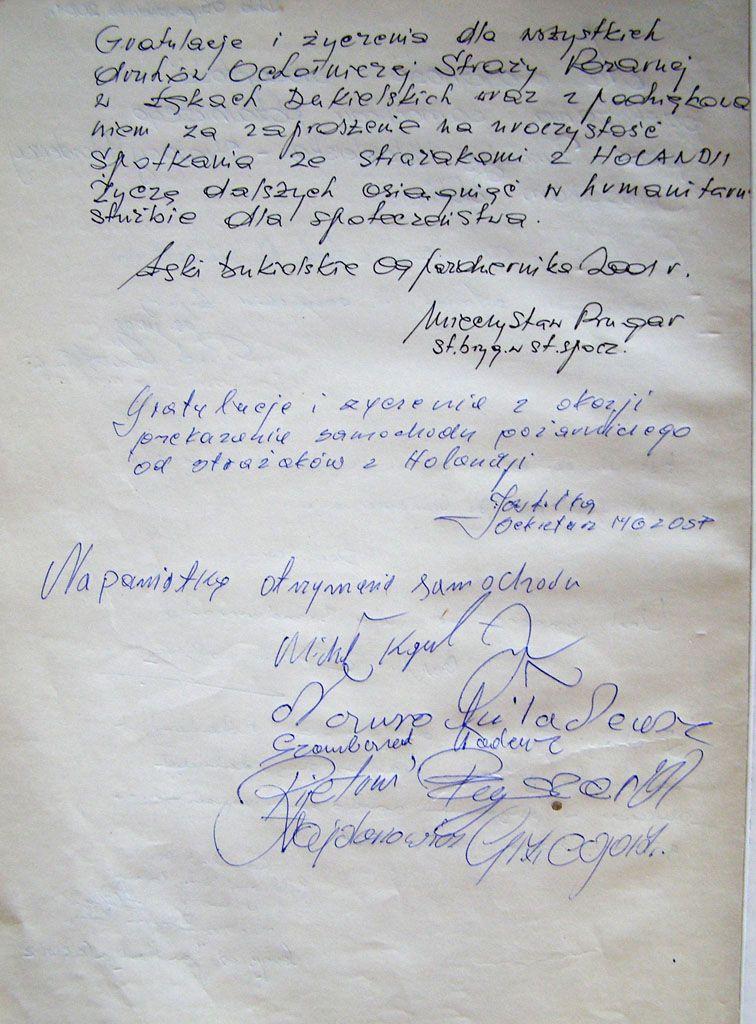 Gratulacje i życzenia dla wszystkich
druhów Ochotniczej Straży Pożarnej
w Łękach Dukielskich wraz z podziękowa
niem za zaproszenie na uroczystość
spotkania ze strażakami z HOLANDII
Życzę dalszych osiągnięć w humanitarn
służbie dla społeczeństwa.
Łęki Dukielskie 09 października 2001 r.
Mieczysław Prugar
st.bryg.w st.spocz.
Gratulacje i życzenia z okazji
przekazania samochodu pożarniczego
od strażaków z Holandji
Sekretarz MGZOSP
Na pamiątkę otrzymania samochodu
Tadeusz
Ryszard
Najdanowicz Grzegorz